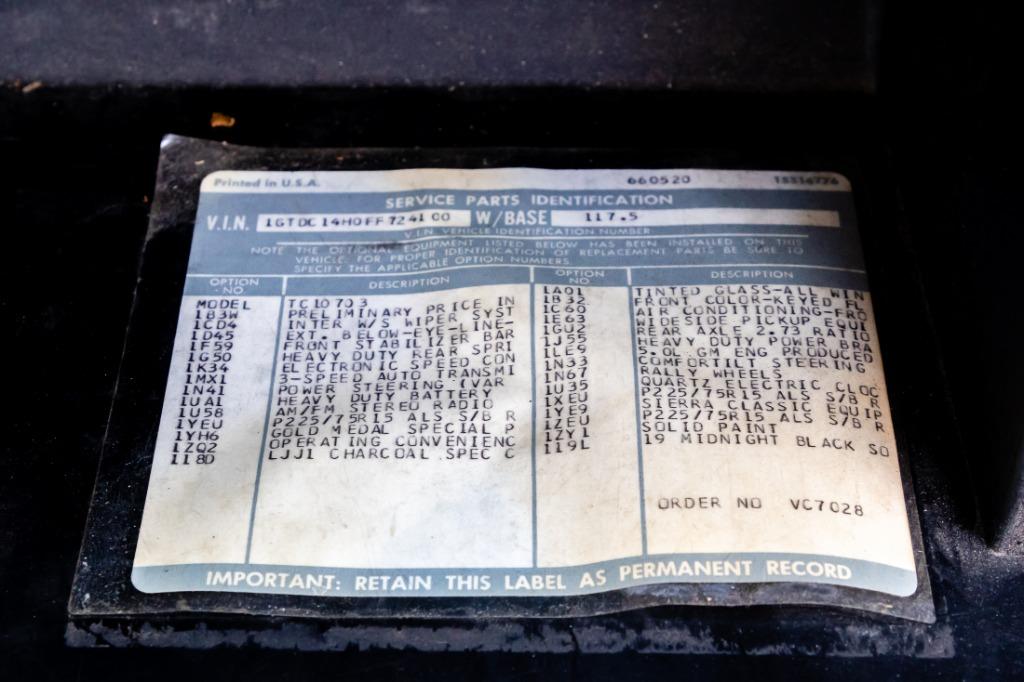 Printed in U.S.A. 660520 15514776
SERVICE PARTS IDENTIFICATION
V.I.N. 1GTDC14H0FF724100 W/BASE 117.5
V.I.N. VEHICLE IDENTIFICATION NUMBER
NOTE THE OPTIONAL EQUIPMENT LISTED BELOW HAS BEEN INSTALLED ON THIS
VEHICLE. FOR PROPER IDENTIFICATION OF REPLACEMENT PARTS BE SURE TO
SPECIFY THE APPLICABLE OPTION NUMBERS.
OPTION NO. DESCRIPTION
MODEL TC10703
1B3W PRELIMINARY PRICE IN
1CD4 INTER W/S WIPER SYST
1D45 EXT. BELOW-EYE-LINE-
1F59 FRONT STABILIZER BAR
1G50 HEAVY DUTY REAR SPRI
1K34 ELECTRONIC SPEED CON
1MX1 3-SPEED AUTO TRANSMI
1N41 POWER STEERING (VAR
1UA1 HEAVY DUTY BATTERY
1U58 AM/FM STEREO RADIO
1YEU P225/75R15 ALS S/B R
1YH6 GOLD MEDAL SPECIAL P
1ZQ2 OPERATING CONVENIENC
118D LJJ1 CHARCOAL SPEC C
OPTION NO. DESCRIPTION
1A01 TINTED GLASS-ALL WIN
1B32 FRONT COLOR-KEYED FL
1C60 AIR CONDITIONING-FRO
1E63 WIDESIDE PICKUP EQUI
1GU2 REAR AXLE 2.73 RATIO
1J55 HEAVY DUTY POWER BRA
1LE9 5.0L GM ENG PRODUCED
1N33 COMFORTILT STEERING
1N67 RALLY WHEELS
1U35 QUARTZ ELECTRIC CLOC
1XEU P225/75R15 ALS S/B R
1YE9 SIERRA CLASSIC EQUIP
1ZEU P225/75R15 ALS S/B R
1ZY1 SOLID PAINT
119L 19 MIDNIGHT BLACK SO
ORDER NO VC7028
IMPORTANT: RETAIN THIS LABEL AS PERMANENT RECORD